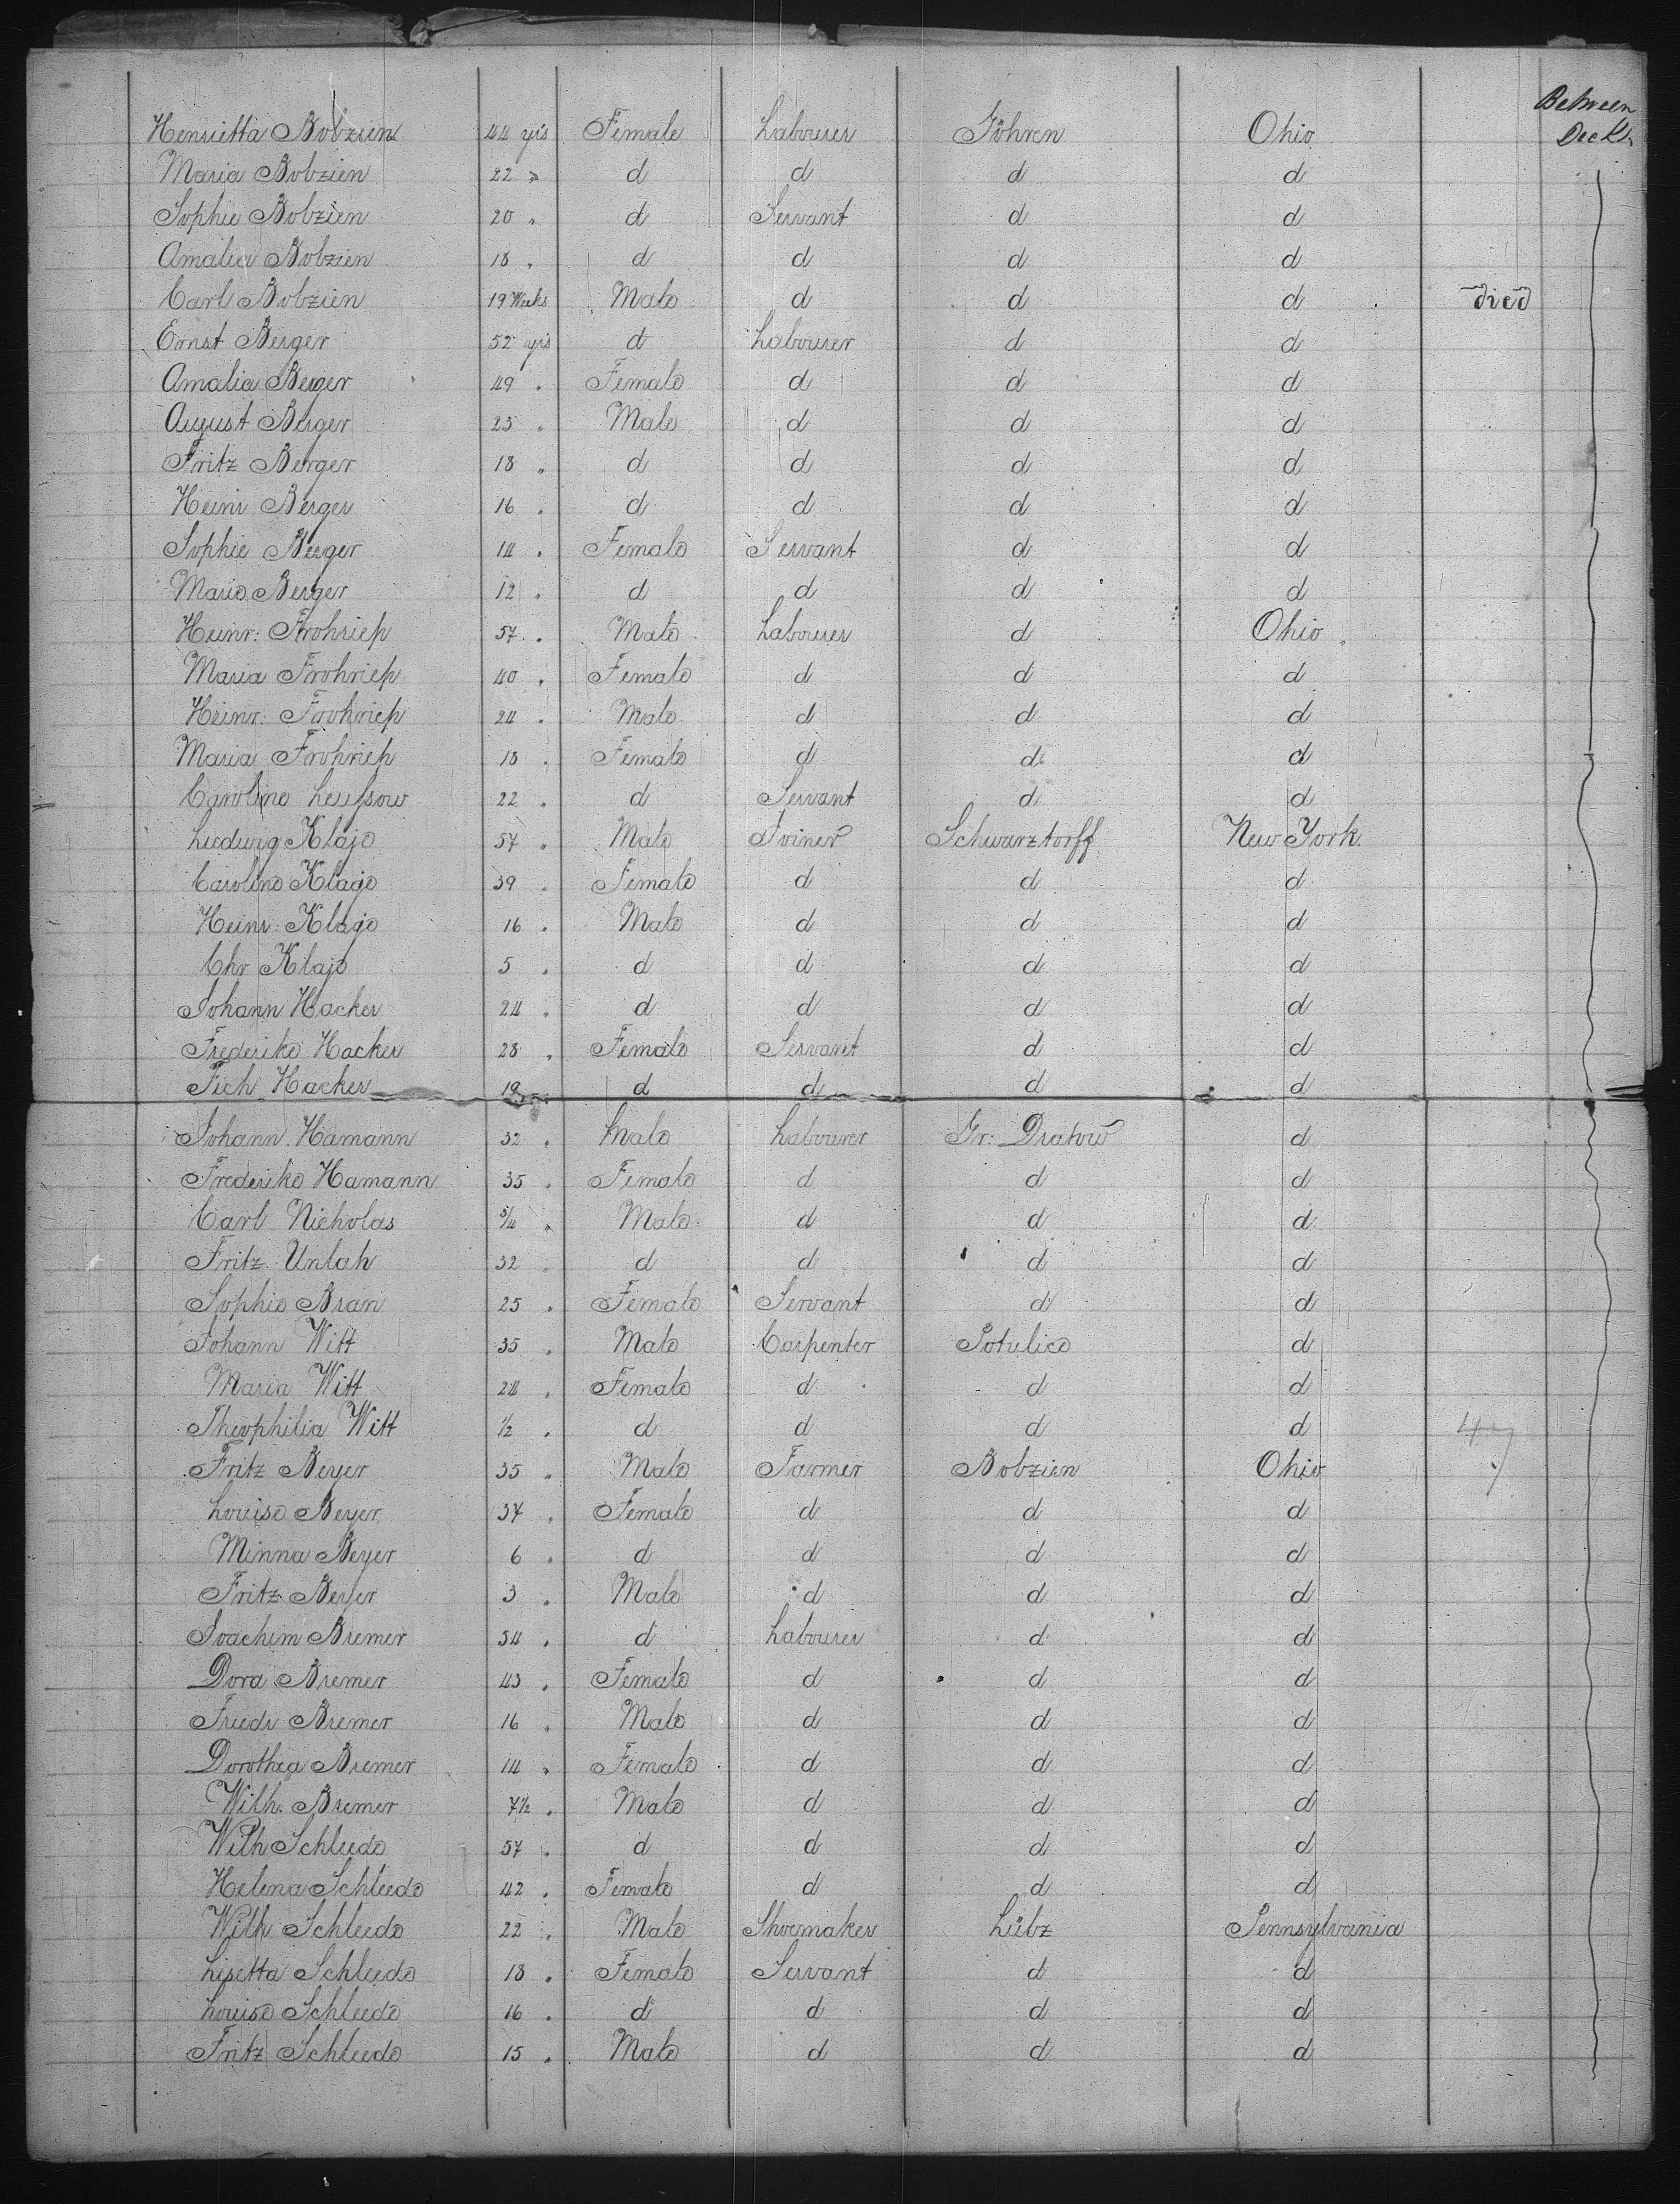 Between
Henrietta Bobzien 44 yrs Female Labourer Göhren Ohio Decks
Maria Bobzien 22 " d d d d
Sophie Bobzien 20 " d Servant d d
Amalia Bobzien 18 " d d d d
Carl Bobzien 19 Weeks Male d d d died
Ernst Berger 52 yrs d Labourer d d
Amalia Berger 49 " Female d d d
August Berger 23 " Male d d d
Fritz Berger 18 " d d d d
Heinr Berger 16 " d d d d
Sophie Berger 14 " Female Servant d d
Marie Berger 12 " d d d d
Heinr: Frohriep 57 " Male Labourer d Ohio
Maria Frohriep 40 " Female d d d
Heinr: Frohriep 24 " Male d d d
Maria Frohriep 18 " Female d d d
Caroline 22 " d Servant d d
Ludwig Klaje 57 " Male Joiner Schwarztorff New York
Caroline Klaje 39 " Female d d d
Heinr: Klaje 16 " Male d d d
Chr Klaje 5 " d d d d
Johann Hacker 24 " d d d d
Frederike Hacker 28 " Female Servant d d
Fich Hacker 19 d d d d
Johann Hamann 32 " Male Labourer Gr: Dratow d
Frederike Hamann 35 " Female d d d
Carl Nicholas 3/4 " Male d d d
Fritz Unlah 32 " d d d d
Sophie Bran 25 " Female Servant d d
Johann Witt 35 " Male Carpenter Potulice d
Maria Witt 24 " Female d d d
Theophilia Witt 1/2 " d d d d 47
Fritz Beyer 35 " Male Farmer Bobzien Ohio
Louise Beyer 34 " Female d d d
Minna Beyer 6 " d d d d
Fritz Beyer 3 " Male d d d
Joachim Bremer 54 " d Labourer d d
Dora Bremer 43 " Female d d d
Friedr Bremer 16 " Male d d d
Dorothea Bremer 14 " Female d d d
Wilh. Bremer 7 1/2 " Male d d d
Wilh Schleede 57 " d d d d
Helena Schleede 42 " Female d d d
Wilh Schleede 22 " Male Shoemaker Lübz Pennsylvania
Lisetta Schleede 18 " Female Servant d d
Louise Schleede 16 " d d d d
Fritz Schleede 15 " Male d d d